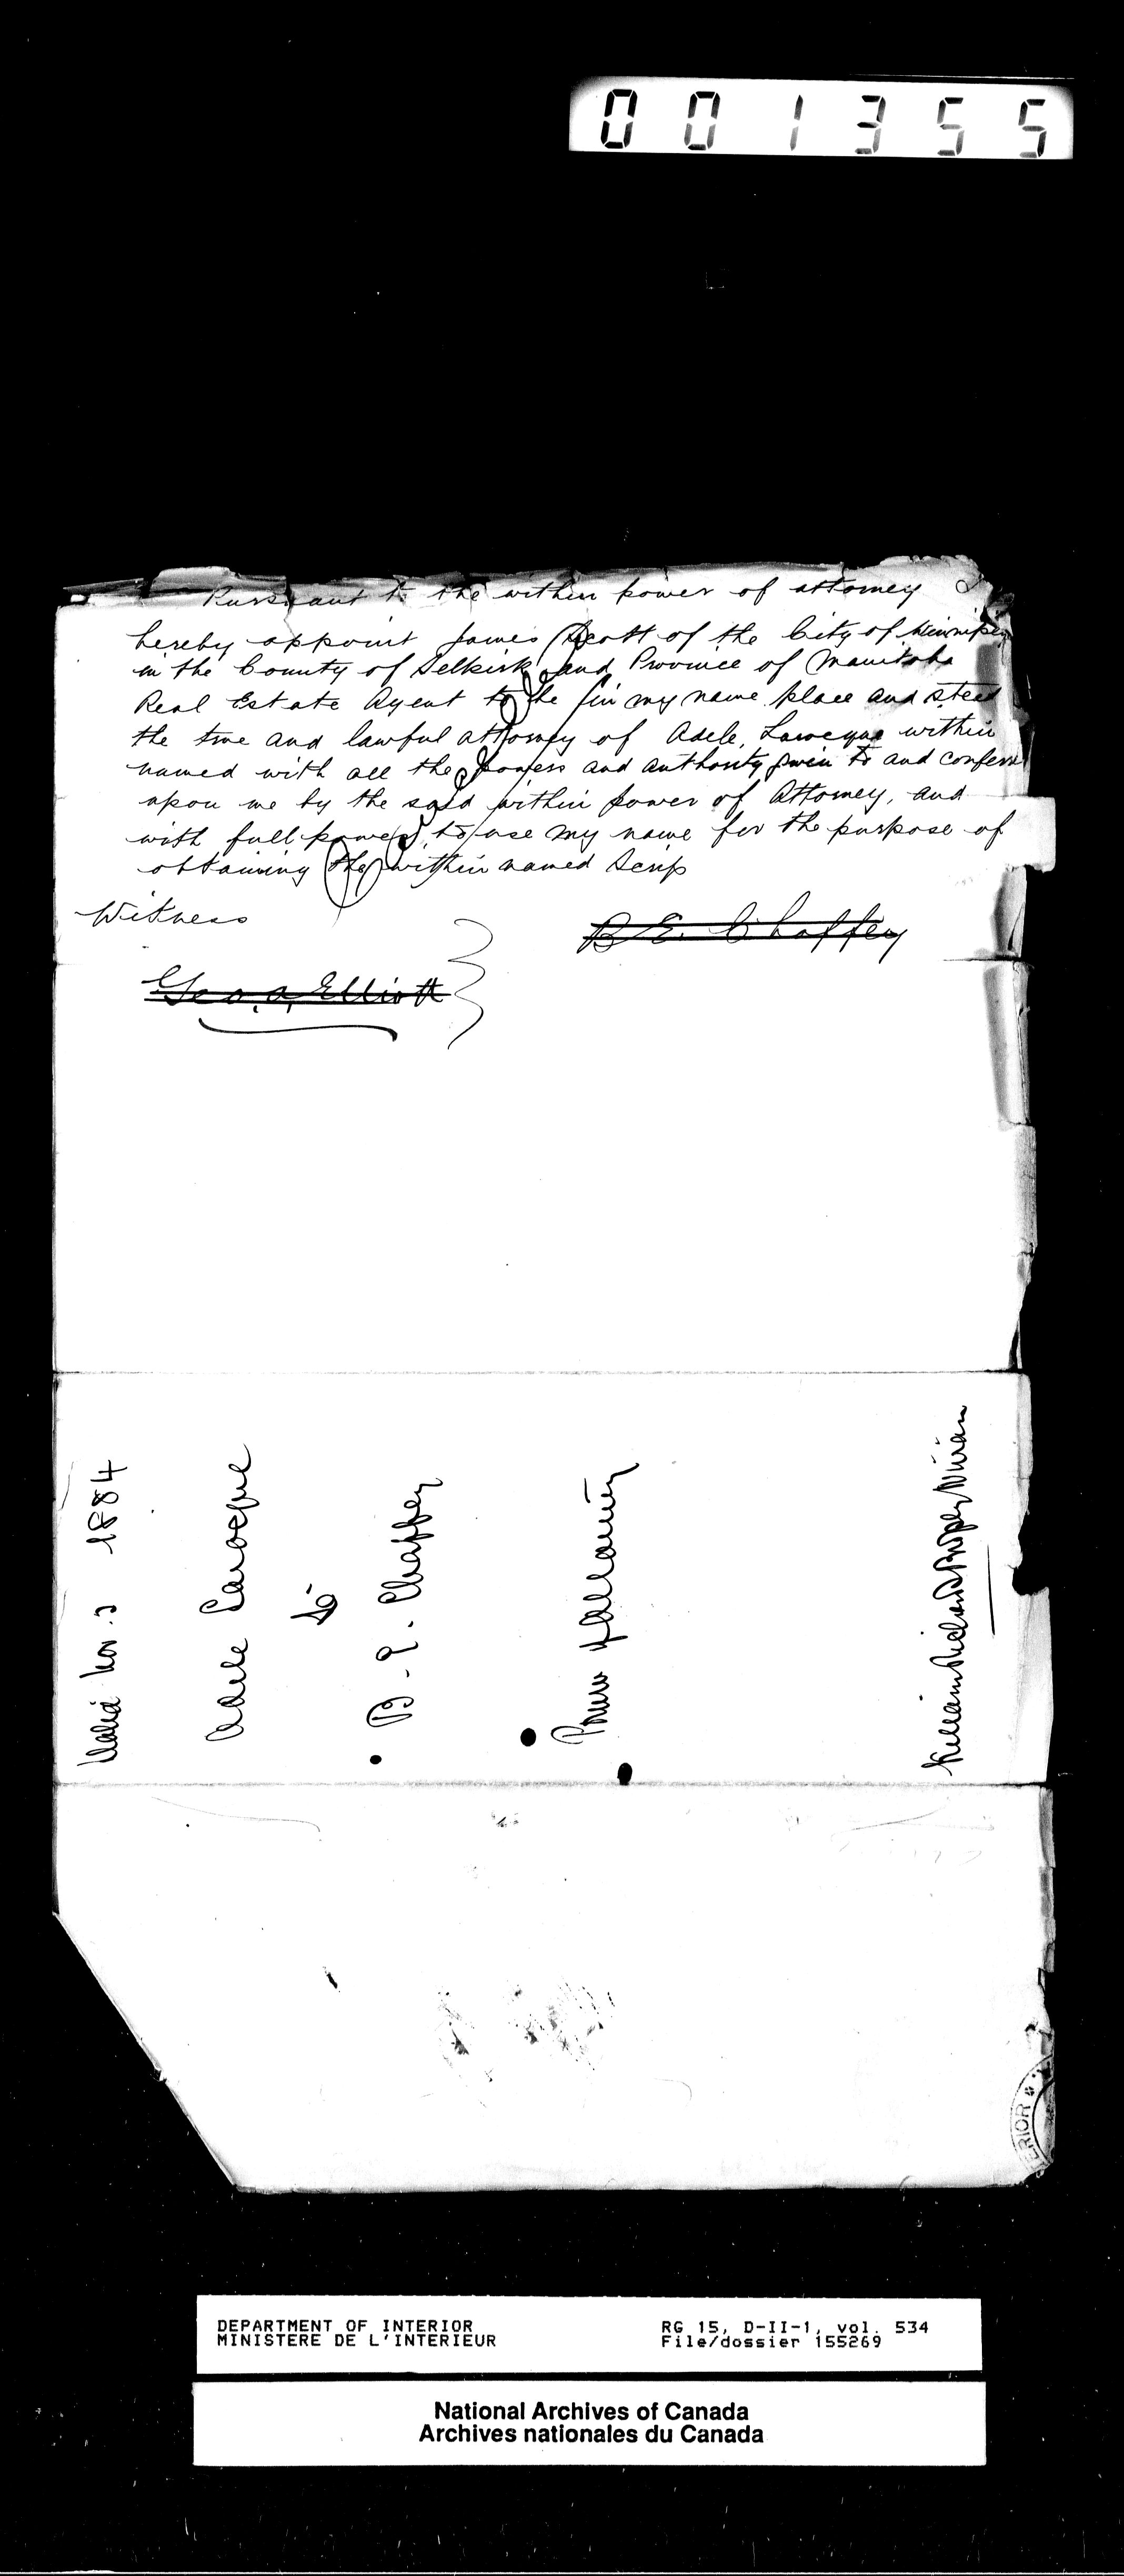 001355
Pursuant to the within power of attorney I
hereby appoint James Scott of the City of Winnipeg
in the County of Selkirk and Province of Manitoba
Real Estate Agent to be in my name place and stead
the true and lawful attorney of Adele Larocque within
named with all the powers and authority given to and conferred
upon me by the said within power of Attorney, and
with full power to use my name for the purpose of
obtaining the within named Scrip
Witness
B E Chaffey
Geo. A. Elliott
Dated Nov. 1884
Adele Larocque
to
B. E. Chaffey
Power of Attorney
ERIOR
DEPARTMENT OF INTERIOR
MINISTERE DE L'INTERIEUR
RG 15, D-II-1, vol. 534
File/dossier 155269
National Archives of Canada
Archives nationales du Canada